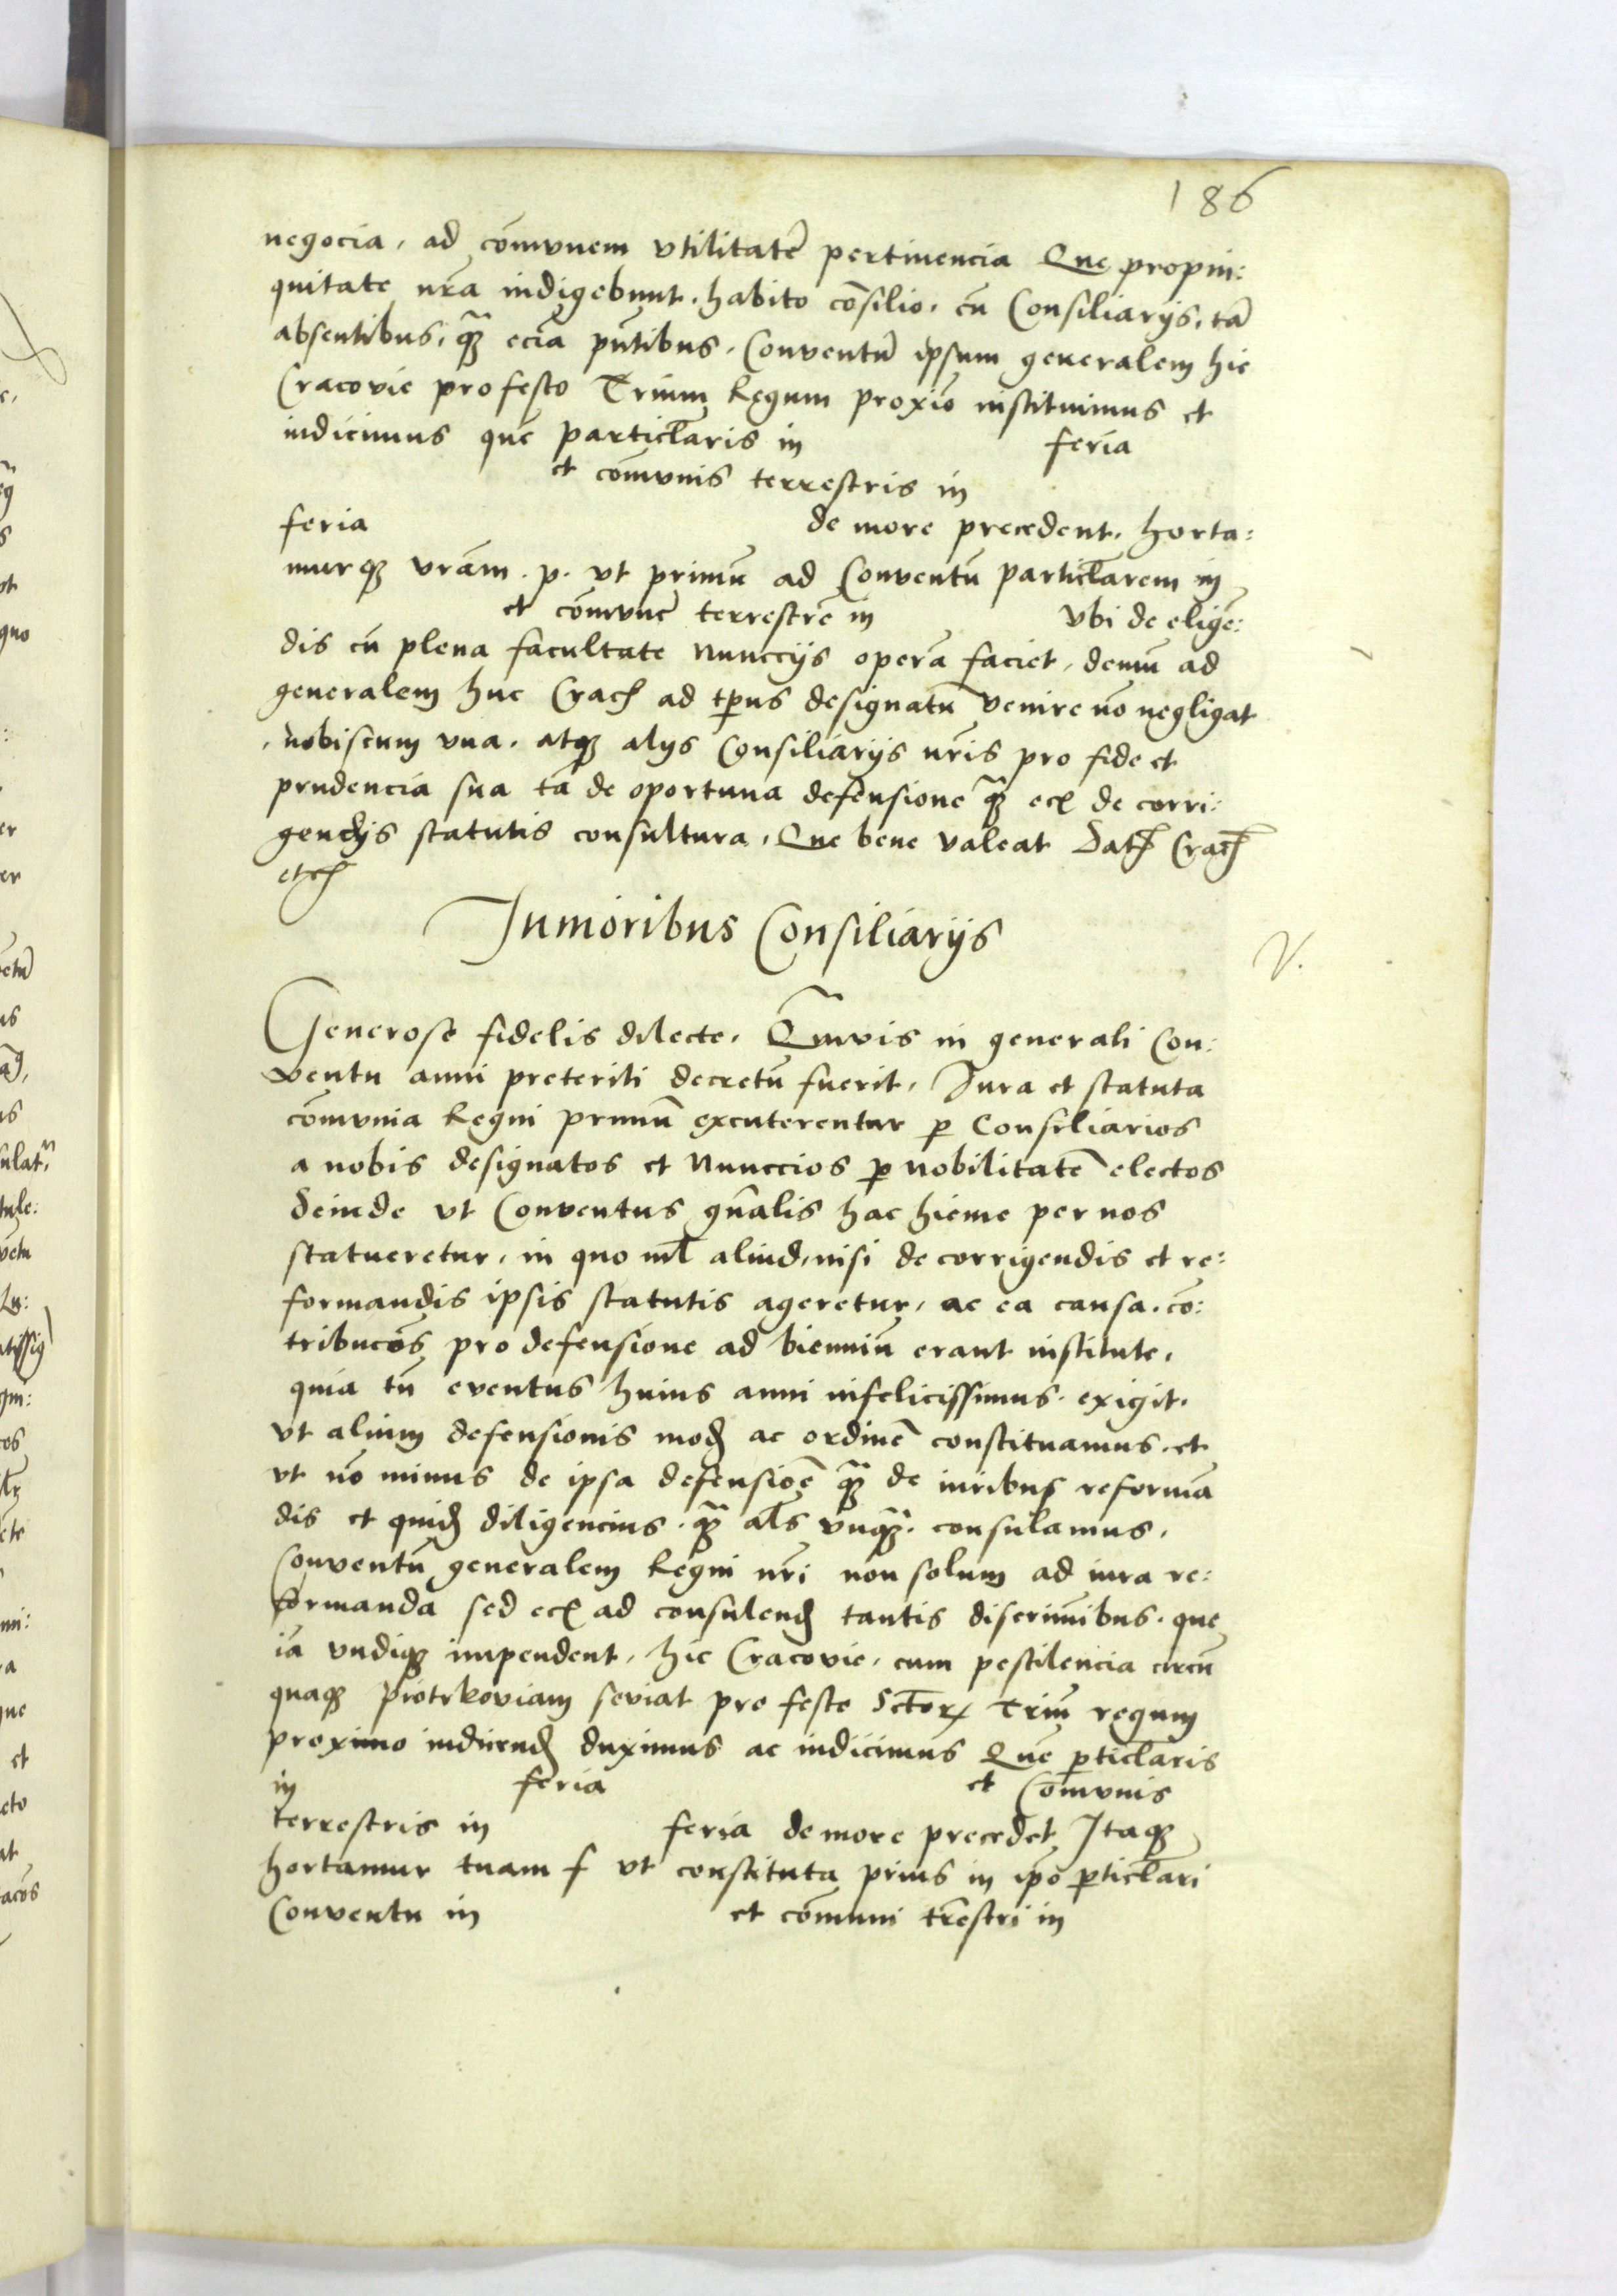 186
negocia, ad co͞munem vtilitatē pertinencia Que propin:
quitate nr͞a indigebunt. habito co͞silio. cu͞ Consiliarijs, ta͞
absentibus, q͞ꝫ ecia͞ pn͞tibus. Conventu͞ ipsum generalem hic
Cracovie pro festo Trium Regum proxi͞o instituimus et
indicimus que͞ particl͞aris in feria
et co͞munis terrestris in
feria de more precedent. horta:
murqꝫ vra͞m. p. vt primu͞ ad Conventu͞ particl͞arem in
et co͞mune͞ terrestre͞ in vbi de elige͞:
dis cu͞ plena facultate Nunccijs opera͞ faciet, demu͞ ad
generalem huc Crac̄ ad tp͞us designatu͞ venire no͞ negligat
, nobiscum vna. atqꝫ alijs Consiliarijs nr͞is pro fide et
prudencia sua ta͞ de oportuna defensione q͞ꝫ ec̄ de corri:
gendis statutis consultura, Que bene valeat Dat̄ Crac̄
etc̄
Junioribus Consiliarijs
V.
Generose fidelis dilecte, Q͞mvis in generali Con:
ventu anni preteriti decretu͞ fuerit, Jura et statuta
co͞munia Regni primu͞ excuterentur ꝑ Consiliarios
a nobis designatos et Nunccios ꝑ nobilitate͞ electos
Deinde vt Conventus gn͞alis hac hieme per nos
statueretur, in quo nil͞ aliud, nisi de corrigendis et re:
formandis ipsis statutis ageretur, ac ea causa. co͞:
tribuco͞s pro defensione ad bienniu͞ erant institute,
quia tn͞ eventus huius anni infelicissimus. exigit.
vt alium defensionis mod̄ ac ordine͞ constituamus. et
vt no͞ minus de ipsa defensio͞e q͞ꝫ de iuribus reforma͞
dis et quid̄ diligencius. q͞ꝫ al͞s vnq͞ꝫ. consulamus,
Conventu͞ generalem Regni nr͞i non solum ad iura re:
formanda sed ec̄ ad consulend̄ tantis discriminibus. que
ia͞ vndiqꝫ impendent, hic Cracovie, cum pestilencia circu͞
quaqꝫ Piotrkoviam seviat pro festo Sc͞torꝝ Triu͞ regum
proximo indicend̄ duximus ac indicimus Que͞ ꝑticl͞aris
in feria et Co͞munis
terrestris in feria de more precedet Itaqꝫ
hortamur tuam f vt constituta prius in ip͞o ꝑticl͞ari
Conventu in et co͞muni tr͞estri in